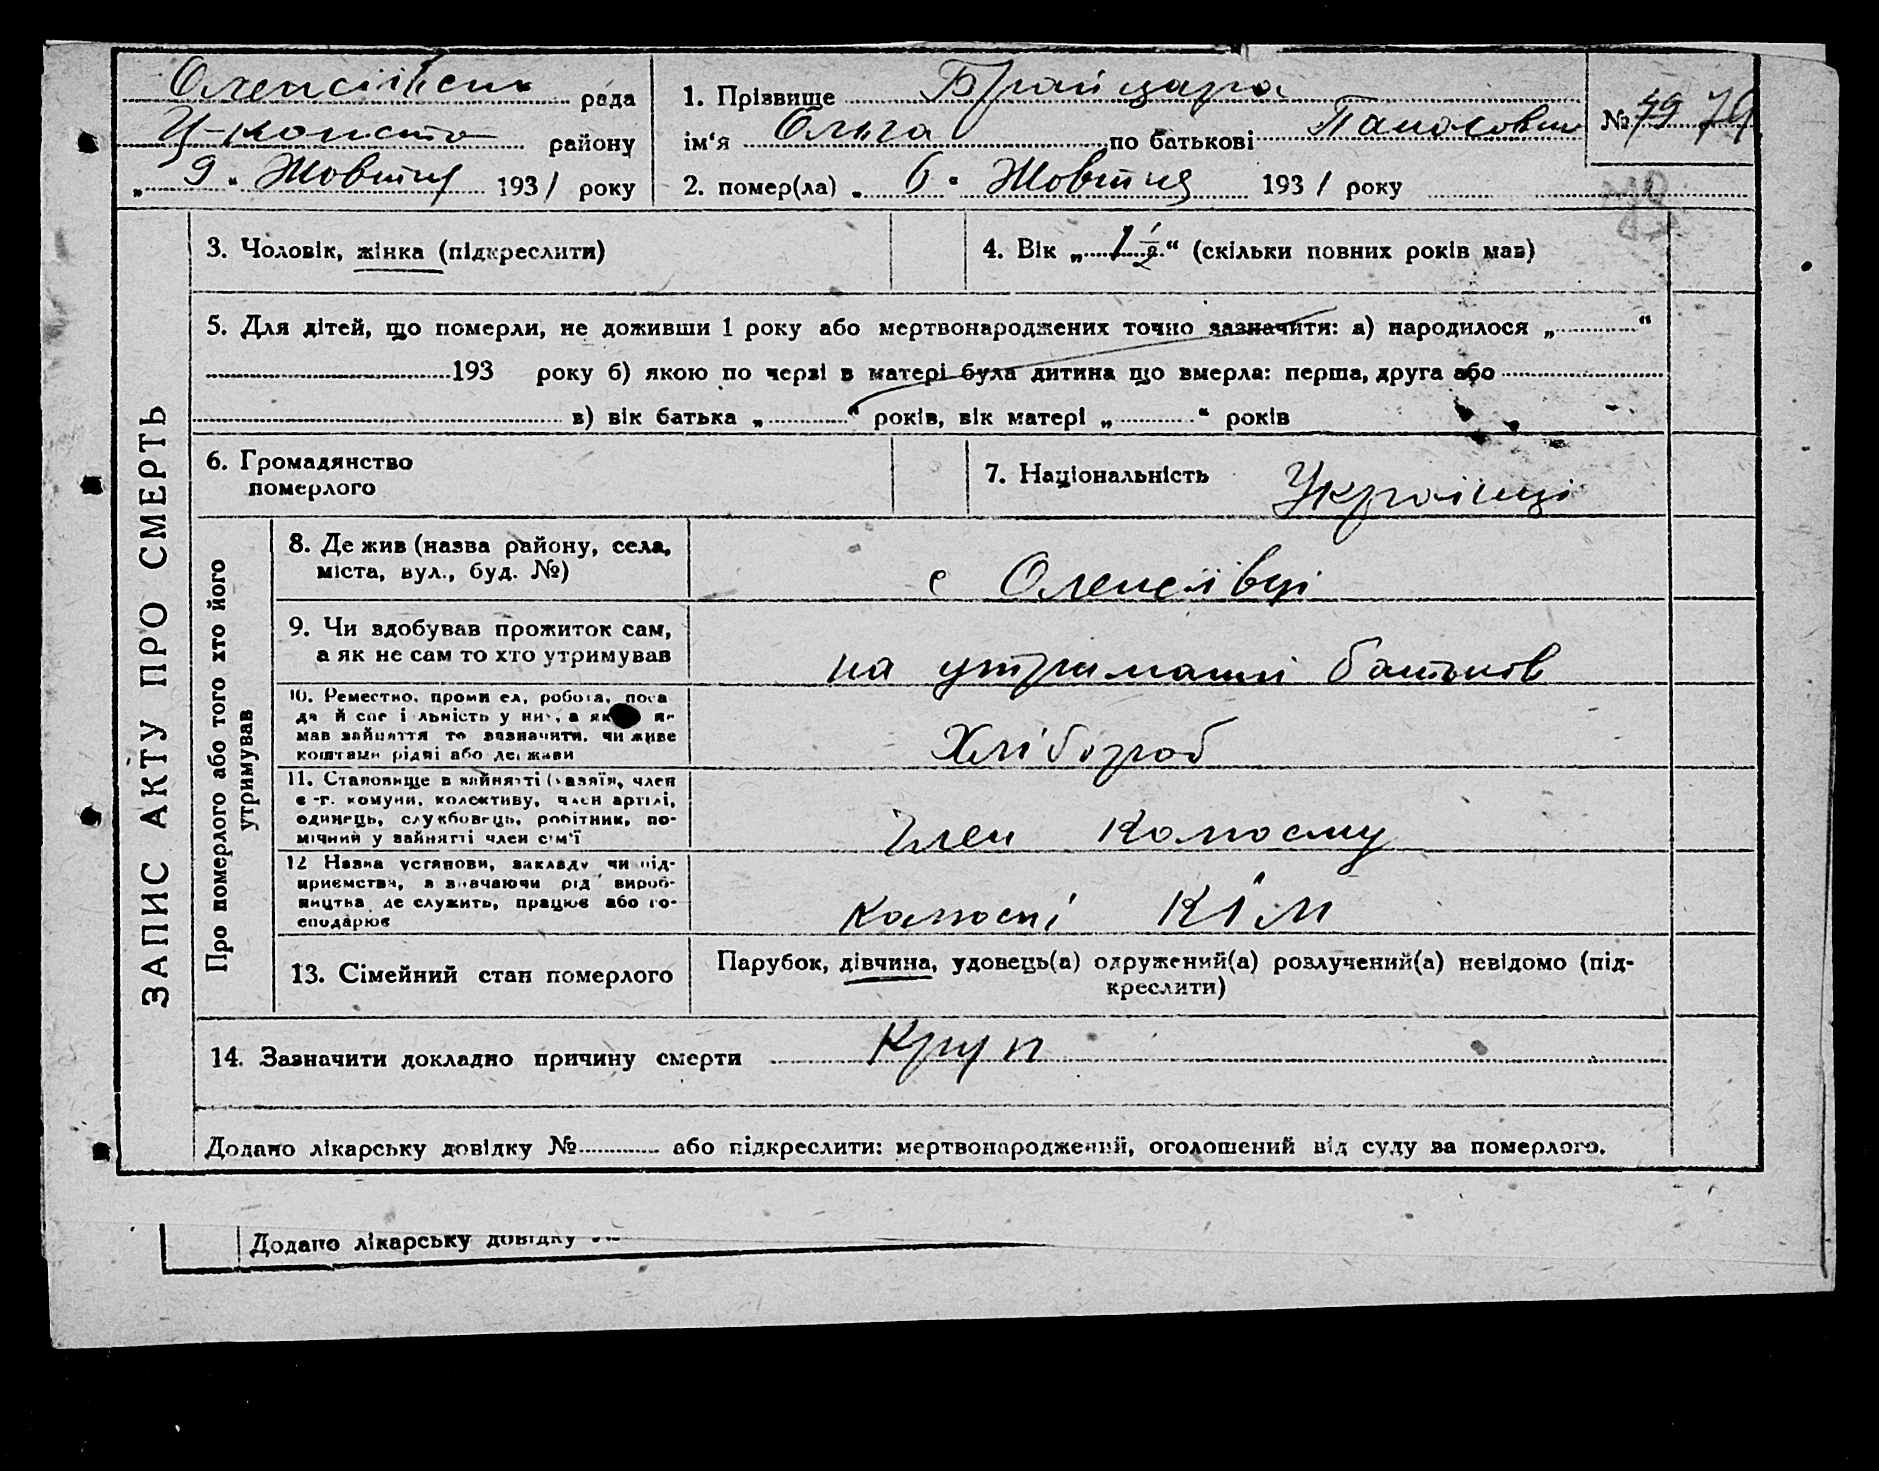 рада
району
„ 9 “ Жовтня 1931 року
1. Прізвище
ім‘я Ольга по батькові
№ 79 79
2. помер(ла) „ 6 “ Жовтня 1931 року
ЗАПИС АКТУ ПРО СМЕРТЬ
3. Чоловік, жінка (підкреслити)
4. Вік „ 1 1/2 “ (скільки повних років мав)
5. Для дітей, що померли, не доживши 1 року або мертвонароджених точно зазначити: а) народилося „ “
193 року б) якою по черзі в матері була дитина що вмерла: перша, друга або
в) вік батька „ “ років, вік матері „ “ років
6. Громадянство
померлого
7. Національність
Про померлого або того хто його
утримував
8. Де жив (назва району, села,
міста, вул., буд. №)
с Олексіївці
9. Чи здобував прожиток сам,
а як не сам то хто утримував
на утриманні батьків
10. Ремество, промисел, робота, поса
мав зайняття то зазначити, чи живе
коштами рідні або держави
Хлібороб
11. Становище в зайнятті (хазяїн, член
с-г. комуни, колективу, член артілі,
одинець, службовець, робітник, по-
мічний у зайнятті член сім‘ї
Член
12 Назва установи, закладу чи під-
приємства, зазначаючи рід вироб-
ництва де служить, працює або го-
сподарює
КІМ
13. Сімейний стан померлого
Парубок, дівчина, удовець(а) одружений(а) розлучений(а) невідомо (під-
креслити)
14. Зазначити докладно причину смерти Круп
Додано лікарську довідку № або підкреслити: мертвонароджений, оголошений від суду за померлого.
Додано лікарську довідку №